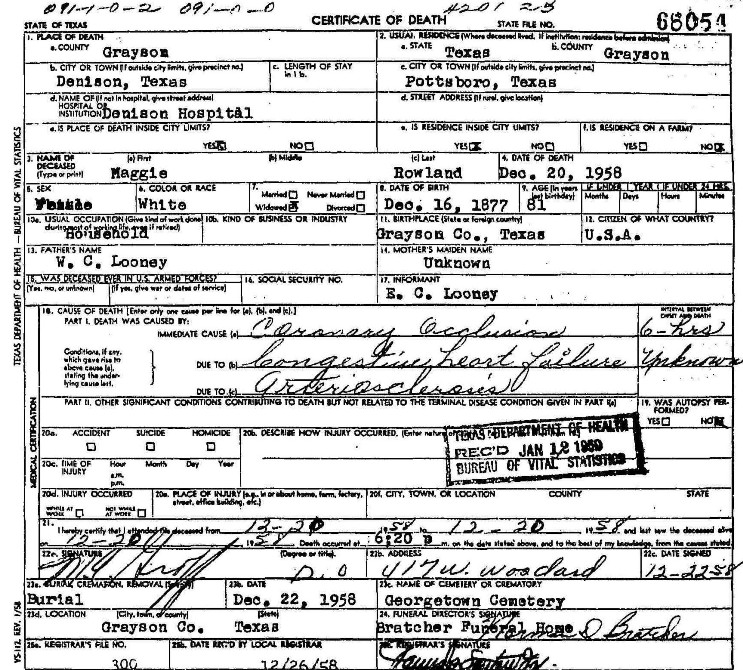 091-1-0-2 091-0-0 4201 25
STATE OF TEXAS CERTIFICATE OF DEATH STATE FILE NO. 68054
1. PLACE OF DEATH 2. USUAL RESIDENCE (Where deceased lived. If institution: residence before admission)
a. COUNTY Grayson a. STATE Texas b. COUNTY Grayson
b. CITY OR TOWN (If outside city limits, give precinct no.) c. LENGTH OF STAY in 1 b. c. CITY OR TOWN (If outside city limits, give precinct no.)
Denison, Texas Pottsboro, Texas
d. NAME OF (If not in hospital, give street address) d. STREET ADDRESS (If rural, give location)
HOSPITAL OR
INSTITUTION Denison Hospital
e. IS PLACE OF DEATH INSIDE CITY LIMITS? e. IS RESIDENCE INSIDE CITY LIMITS? f. IS RESIDENCE ON A FARM?
YES NO YES NO YES NO
3. NAME OF DECEASED (Type or print) (a) First (b) Middle (c) Last 4. DATE OF DEATH
Maggie Rowland Dec. 20, 1958
5. SEX 6. COLOR OR RACE 7. Married Never Married 8. DATE OF BIRTH 9. AGE (In years last birthday) IF UNDER 1 YEAR IF UNDER 24 HRS.
Female White Widowed Divorced Dec. 16, 1877 81 Months Days Hours Minutes
10a. USUAL OCCUPATION (Give kind of work done during most of working life, even if retired) 10b. KIND OF BUSINESS OR INDUSTRY 11. BIRTHPLACE (State or foreign country) 12. CITIZEN OF WHAT COUNTRY?
Household Grayson Co., Texas U.S.A.
13. FATHER'S NAME 14. MOTHER'S MAIDEN NAME
W. C. Looney Unknown
15. WAS DECEASED EVER IN U.S. ARMED FORCES? 16. SOCIAL SECURITY NO. 17. INFORMANT
(Yes, no, or unknown) (If yes, give war or dates of service) E. C. Looney
18. CAUSE OF DEATH [Enter only one cause per line for (a), (b), and (c).] INTERVAL BETWEEN ONSET AND DEATH
PART I. DEATH WAS CAUSED BY:
IMMEDIATE CAUSE (a) Coronary Occlusion 6-hrs
Conditions, if any, which gave rise to above cause (a), stating the underlying cause last. DUE TO (b) Congestive heart failure Unknown
DUE TO (c) Arteriosclerosis
PART II. OTHER SIGNIFICANT CONDITIONS CONTRIBUTING TO DEATH BUT NOT RELATED TO THE TERMINAL DISEASE CONDITION GIVEN IN PART I(a) 19. WAS AUTOPSY PERFORMED?
YES NO
20a. ACCIDENT SUICIDE HOMICIDE 20b. DESCRIBE HOW INJURY OCCURRED. (Enter nature
TEXAS DEPARTMENT OF HEALTH
REC'D JAN 12 1959
BUREAU OF VITAL STATISTICS
20c. TIME OF INJURY Hour Month Day Year
a.m.
p.m.
20d. INJURY OCCURRED 20e. PLACE OF INJURY (e.g., in or about home, farm, factory, street, office building, etc.) 20f. CITY, TOWN, OR LOCATION COUNTY STATE
WHILE AT WORK NOT WHILE AT WORK
21. I hereby certify that I attended the deceased from 12-20 1958 to 12-20 1958 and last saw the deceased alive
on 12-20 1958 Death occurred at 6:20 p m. on the date stated above, and to the best of my knowledge, from the causes stated.
22a. SIGNATURE (Degree or title) 22b. ADDRESS 22c. DATE SIGNED
D.O 417 W. Woodard 12-22-58
23a. BURIAL, CREMATION, REMOVAL (Specify) 23b. DATE 23c. NAME OF CEMETERY OR CREMATORY
Burial Dec. 22, 1958 Georgetown Cemetery
23d. LOCATION (City, town, or county) (State) 24. FUNERAL DIRECTOR'S SIGNATURE
Grayson Co. Texas Bratcher Funeral Home D. Bratcher
25a. REGISTRAR'S FILE NO. 25b. DATE REC'D BY LOCAL REGISTRAR 25c. REGISTRAR'S SIGNATURE
300 12/26/58
TEXAS DEPARTMENT OF HEALTH — BUREAU OF VITAL STATISTICS
MEDICAL CERTIFICATION
VS-112, REV. 1/58